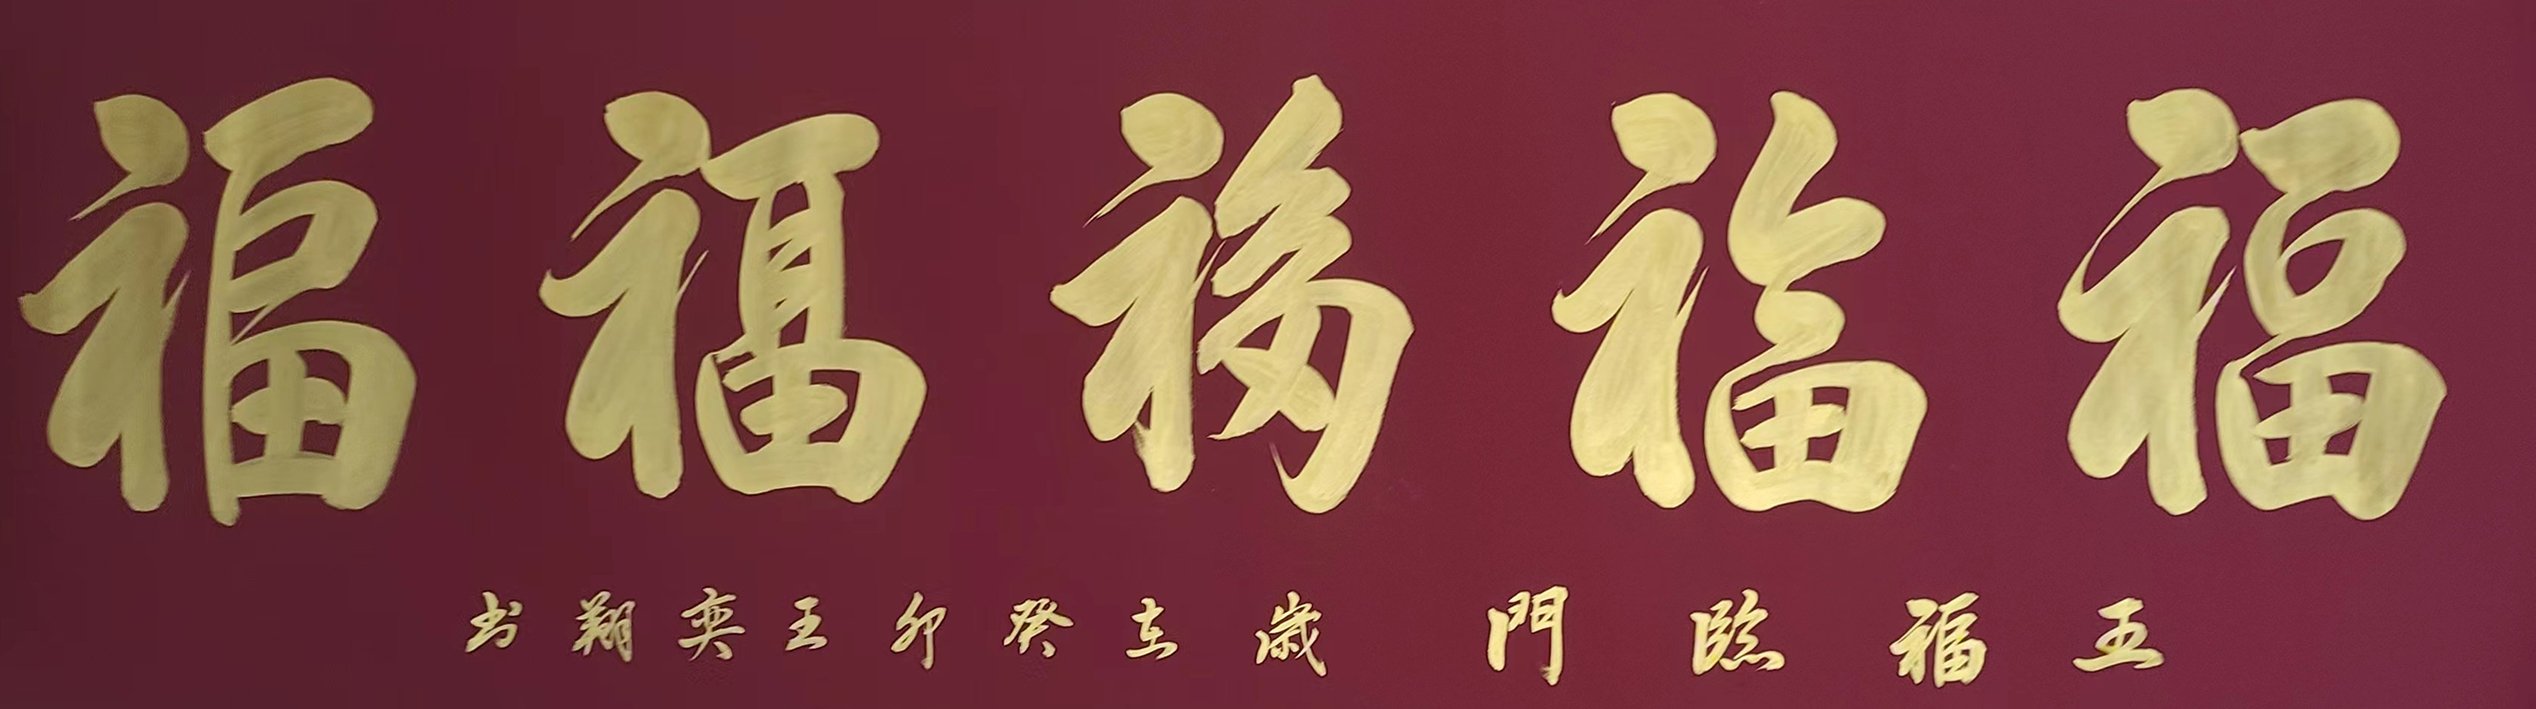 福福福福福
五福臨門 歲在癸卯王奕翔书